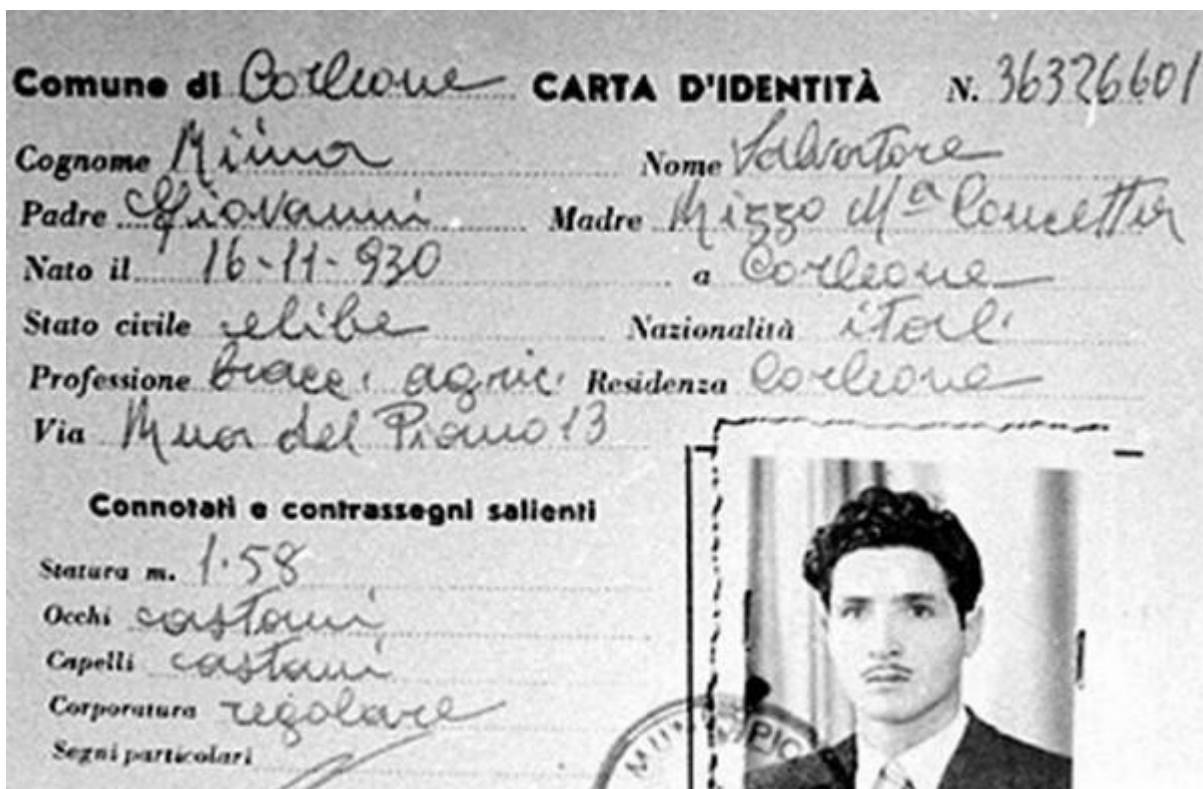 Comune di Corleone CARTA D'IDENTITÀ N. 36326601
Cognome Riina Nome Salvatore
Padre Giovanni Madre Rizzo Mª Concetta
Nato il 16-11-930 a Corleone
Stato civile celibe Nazionalità ital.
Professione bracc. agric. Residenza Corleone
Via Rua del Piano 13
Connotati e contrassegni salienti
Statura m. 1.58
Occhi castani
Capelli castani
Corporatura regolare
Segni particolari